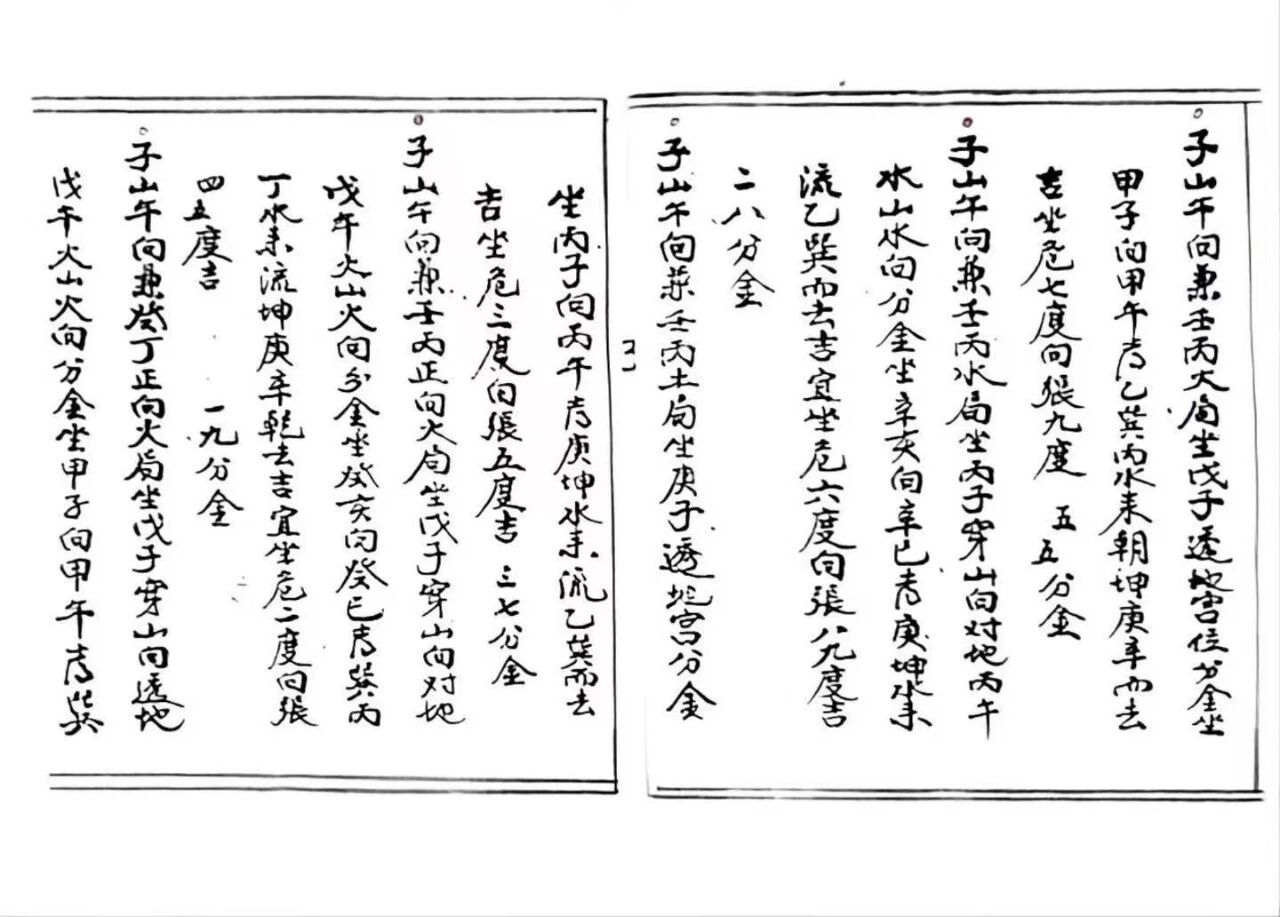 子山午向兼壬丙火局坐戊子透地宫位分金坐
甲子向甲午考乙巽丙水来朝坤庚辛而去
吉坐危七度向張九度 五五分金
子山午向兼壬丙水局坐丙子穿山向对地丙午
水山水向分金坐辛亥向辛巳考庚坤水来
流乙巽而去吉宜坐危六度向張八九度吉
二八分金
子山午向兼壬丙土局坐庚子透地宫分金
坐丙子向丙午考庚坤水来流乙巽而去
吉坐危三度向張五度吉 三七分金
子山午向兼壬丙正向火局坐戊子穿山向对地
戊午火山火向分金坐癸亥向癸巳考巽丙
丁水来流坤庚辛乾去吉宜坐危二度向張
四五度吉 一九分金
子山午向兼癸丁正向火局坐戊子穿山向透地
戊午火山火向分金坐甲子向甲午考巽